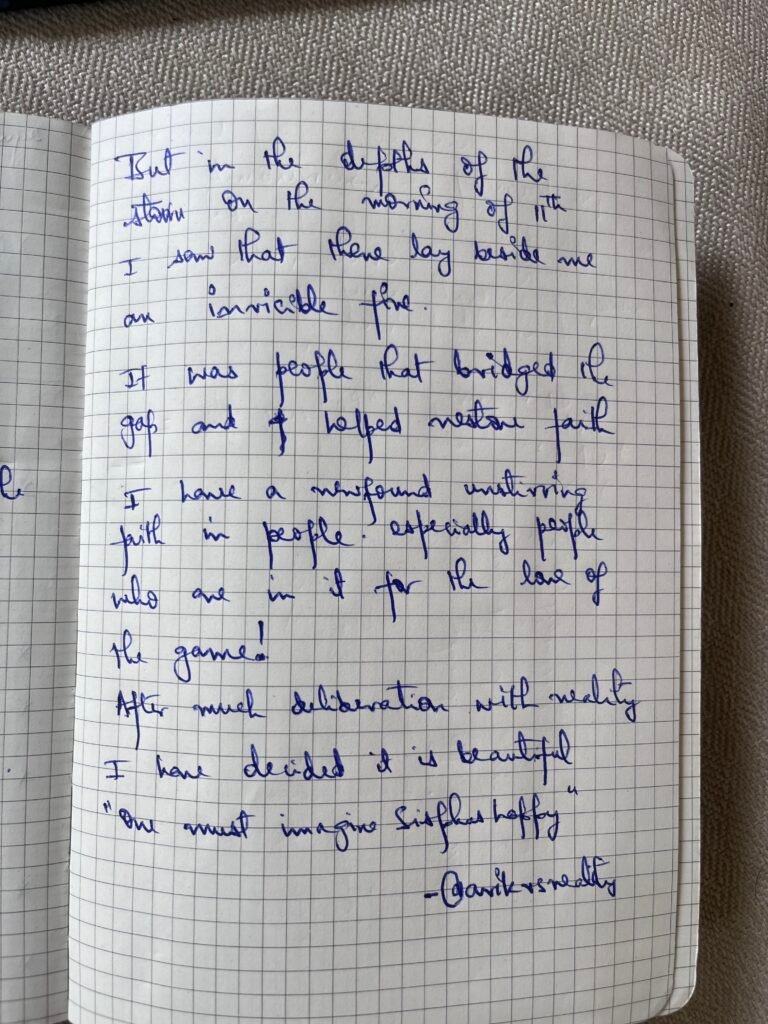 But in the depths of the
storm on the morning of 11th
I saw that there lay beside me
an invicible fire.
It was people that bridged the
gap and helped restore faith
I have a newfound unstirring
faith in people. especially people
who are in it for the love of
the game!
After much deliberation with reality
I have decided it is beautiful
"One must imagine Sisphus happy"
-@arikvsreality